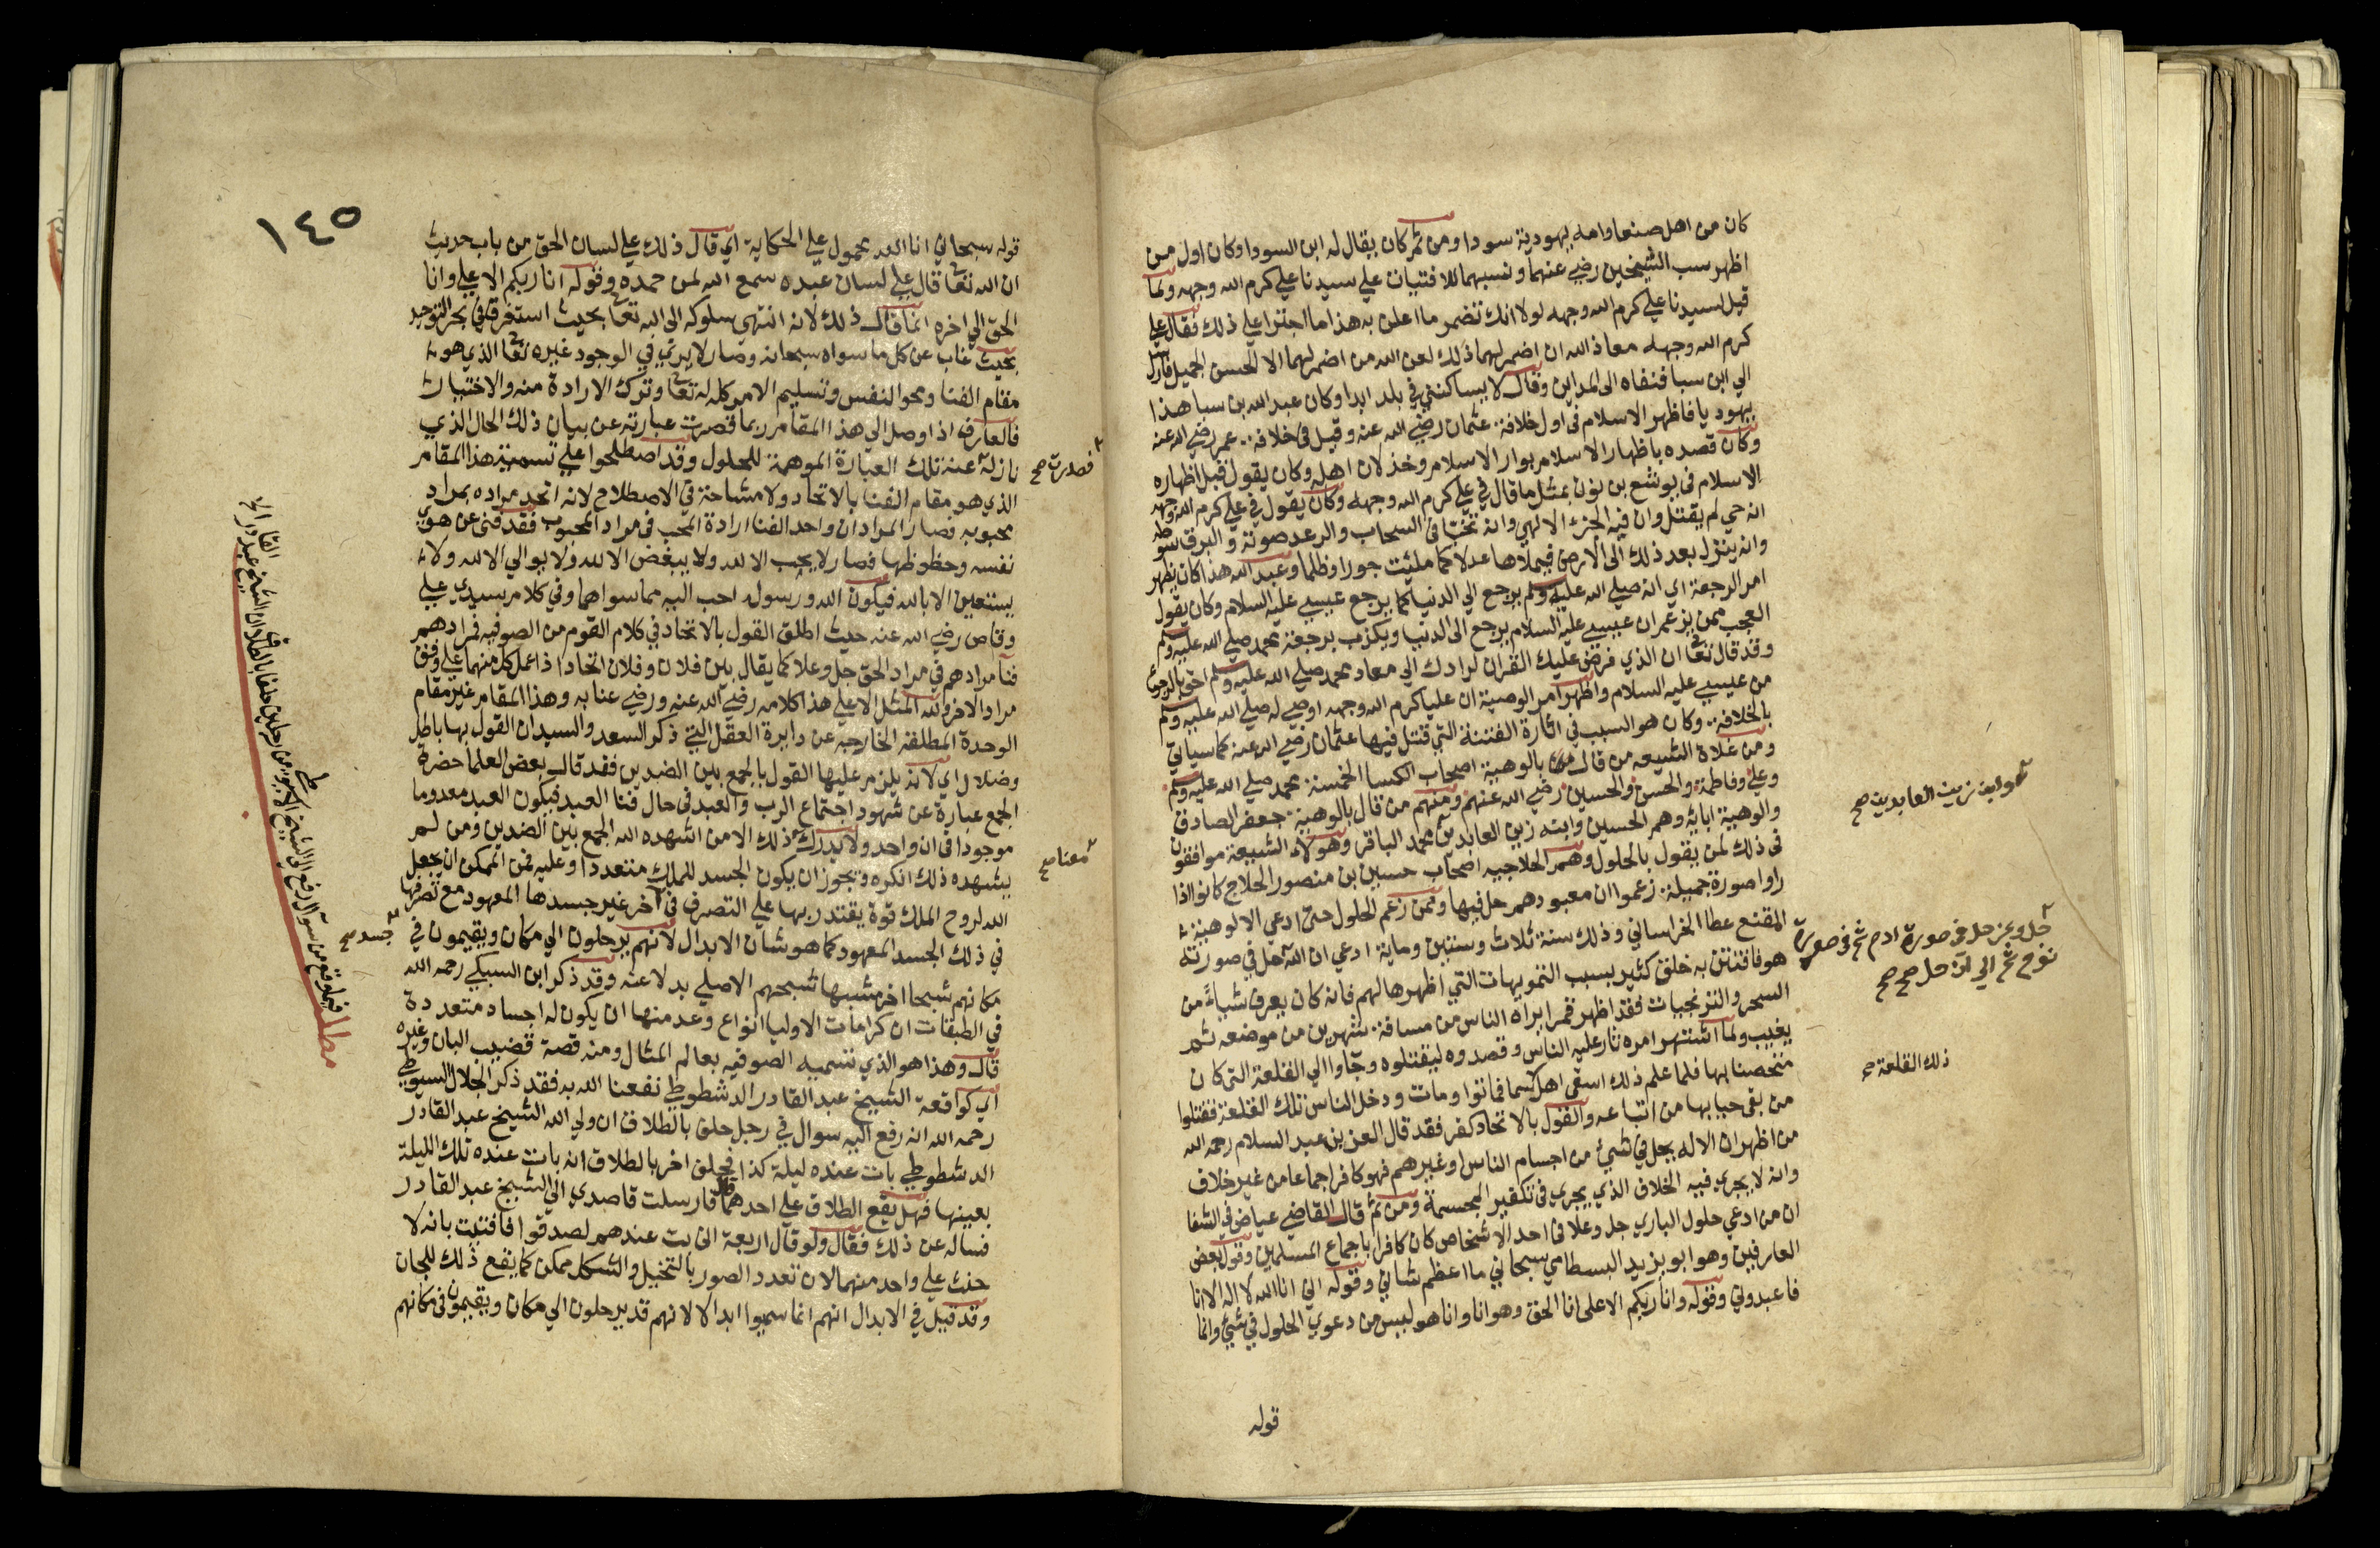 كان من اهل صنعا وامه يهودية سودا ومن ثم كان يقال له ابن السودا وكان اول من
اظهر سب الشيخين رضي عنهما ونسبهما للافتيات علي سيدنا علي كرم الله وجهه ولما
قيل لسيدنا علي كرم الله وجهه لولا انك تضمر ما اعلن به هذا ما اجترا علي ذلك فقال علي
كرم الله وجهه معاذ الله ان اضمر لهما ذلك لعن الله من اضمر لهما الا الحسن الجميل فارسل
الي ابن سبا فنفاه الى المداين وقال لا يساكنني في بلد ابدا وكان عبد الله بن سبا هذا
يهوديا فاظهر الاسلام في اول خلافة عثمان رضي الله عنه وقيل في خلافة عمر رضي الله عنه
وكان قصده باظهار الاسلام بوار الاسلام وخذلان اهله وكان يقول قبل اظهاره
الاسلام في يوشع بن نون بمثل ما قال في علي كرم الله وجهه وكان يقول في علي كرم الله وجهه
انه حي لم يقتل وان فيه الجزء الالهي وانه تخبا في السحاب والرعد صوته والبرق سوطه
وانه ينزل بعد ذلك الى الارض فيملاها عدلا كما ملئت جورا وظلما وعبد الله هذا كان يظهر
امر الرجعة اي انه صلي الله عليه وسلم يرجع الي الدنيا كما يرجع عيسي عليه السلام وكان يقول
العجب ممن يزعم ان عيسي عليه السلام يرجع الى الدنيا ويكذب برجعة محمد صلي الله عليه وسلم
وقد قال تعا ان الذي فرض عليك القران لرادك الي معاد محمد صلي الله عليه وسلم احق بالرجوع
من عيسي عليه السلام واظهر امر الوصية ان عليا كرم الله وجهه اوصي له صلي الله عليه وسلم
بالخلافة وكان هو السبب في اثارة الفتنة التي قتل فيها عثمان رضي الله عنه كما سياتي
ومن غلاة الشيعه من قال بالوهية اصحاب الكسا الخمسة محمد صلي الله عليه وسلم
وعلي وفاطمة والحسن والحسين رضي الله عنهم ومنهم من قال بالوهية جعفر الصادق
والوهية ابايه وهم الحسين وابنه زين العابدين محمد الباقر وهولاء الشيعة موافقون
في ذلك لمن يقول بالحلول وهم الحلاجيه اصحاب حسين بن منصور الحلاج كانوا اذا
راوا صورة جميلة زعموا ان معبودهم حل فيها وممن زعم الحلول حتى ادعي الالوهية
المقنع عطا الخراساني وذلك سنة ثلاث وستين وماية ادعي ان الله حل في صورته
هو فافتتن به خلق كثير بسبب التمويهات التي اظهرها لهم فانه كان يعرف شياء من
السحر والنيرنجيات فقد اظهر قمرا يراه الناس من مسافة شهرين من موضعه ثم
يغيب ولما اشتهر امره ثار عليه الناس وقصدوه ليقتلوه وجاوا الي القلعة التي كان
متحصنا بها فلما علم ذلك اسقي اهله سما فماتوا ومات ودخل الناس تلك القلعة فقتلوا
من بقي حيا بها من اتباعه والقول بالاتحاد كفر فقد قال العز بن عبد السلام رحمه الله
من اظهر ان الاله يحل في شيء من اجسام الناس او غيرهم فهو كافر اجماعا من غير خلاف
وانه لا يجري فيه الخلاف الذي يجري في تكفير المجسمة ومن ثم قال القاضي عياض في الشفا
ان من ادعي حلول الباري جل وعلا في احد الاشخاص كان كافرا باجماع المسلمين وقول بعض
العارفين وهو ابو يزيد البسطامي سبحاني ما اعظم شاني وقوله اني انا الله لا اله الا انا
فاعبدوني وقوله وانا ربكم الاعلى انا الحق وهو انا وانا هو ليس من دعوي الحلول في شيء وانما
قوله
وابنه زين العابدين صح
جل وعز حل في صورة ادم ثم في صورة
نوح ثم الي ان حل صح صح
ذلك القلعة صح
١٤٥
قوله سبحاني انا الله محمول علي الحكاية اي قال ذلك علي لسان الحق من باب حديث
ان الله تعا قال علي لسان عبده سمع الله لمن حمده وقوله انا ربكم الاعلي وانا
الحق الي اخره انما قال ذلك لانه انتهي سلوكه الى الله تعا بحيث استغرق في بحر التوحيد
بحيث غاب عن كل ما سواه سبحانه وصار لا يري في الوجود غيره تعا الذي هو
مقام الفنا ومحو النفس وتسليم الامر كله له تعا وترك الارادة منه والاختيار
فالعارف اذا وصل الي هذا المقام ربما قصرت عبارته عن بيان ذلك الحال الذي
نازله عنه تلك العبارة الموهمة للحلول وقد اصطلحوا علي تسمية هذا المقام
الذي هو مقام الفنا بالاتحاد ولا مشاحنة في الاصطلاح لانه اتحد مراده بمراد
محبوبه فصار المرادان واحد الفنا ارادة المحب في مراد المحبوب فقد فني عن هوي
نفسه وحظوظها فصار لا يحب الا لله ولا يبغض الا لله ولا يوالي الا لله ولا
يستعين الا بالله فيكون الله ورسوله احب اليه مما سواهما وفي كلام سيدي علي
وفا رضي الله عنه حيث اطلق القول بالاتحاد في كلام القوم من الصوفيه فمرادهم
فنا مرادهم في مراد الحق جل وعلا كما يقال بين فلان وفلان اتحاد اذا عمل كل منهما علي وفق
مراد الاخر ولله المثل الاعلي هذا كلامه رضي الله عنه ورضي عنا به وهذا المقام غير مقام
الوحدة المطلقة الخارجه عن دايرة العقل التي ذكر السعد والسيد ان القول بها باطل
وضلال اي لانه يلزم عليها القول بالجمع بين الضدين فقد قال بعض العلما حضرة
الجمع عبارة عن شهود اجتماع الرب والعبد في حال فنا العبد فيكون العبد معدوما
موجودا في ان واحد ولا يدرك ذلك الا من اشهده الله الجمع بين الضدين ومن لم
يشهده ذلك انكره ويجوز ان يكون الجسد للملك متعددا وعليه فمن الممكن ان يجعل
الله لروح الملك قوة يقتدر بها علي التصرف في اخر غير جسدها المعهود مع تصرفها
في ذلك الجسد المعهود كما هو شان الابدال لانهم يرحلون الي مكان ويقيمون في
مكانهم شبحا اخر مشبها لشبحهم الاصلي بدلا عنه وقد ذكر ابن السبكي رحمه الله
في الطبقات ان كرامات الاوليا انواع وعد منها ان يكون له اجساد متعددة
قال وهذا هو الذي تسميه الصوفيه بعالم المثال ومنه قصة قضيب البان وغيره
اي كواقعة الشيخ عبد القادر الدشطوطي نفعنا الله به فقد ذكر الجلال السيوطي
رحمه الله انه رفع اليه سوال في رجل حلف بالطلاق ان ولي الله الشيخ عبد القادر
الدشطوطي بات عنده ليلة كذا فحلف اخر بالطلاق انه بات عنده تلك الليلة
بعينها فهل يقع الطلاق علي احدهما قال فارسلت قاصدي الي الشيخ عبد القادر
فساله عن ذلك فقال ولو قال اربعة اني بت عندهم لصدقوا فافتيت بانه لا
حنث علي واحد منهما لان تعدد الصور بالتخيل والتشكل ممكن كما يقع ذلك للجان
وقد قيل في الابدال انهم انما سموا ابدالا لانهم قد يرحلون الي مكان ويقيمون في مكانهم
قصدرت صح
معنا صح
جسد صح
مطلب
فيما وقع من سوال رفع الي الشيخ